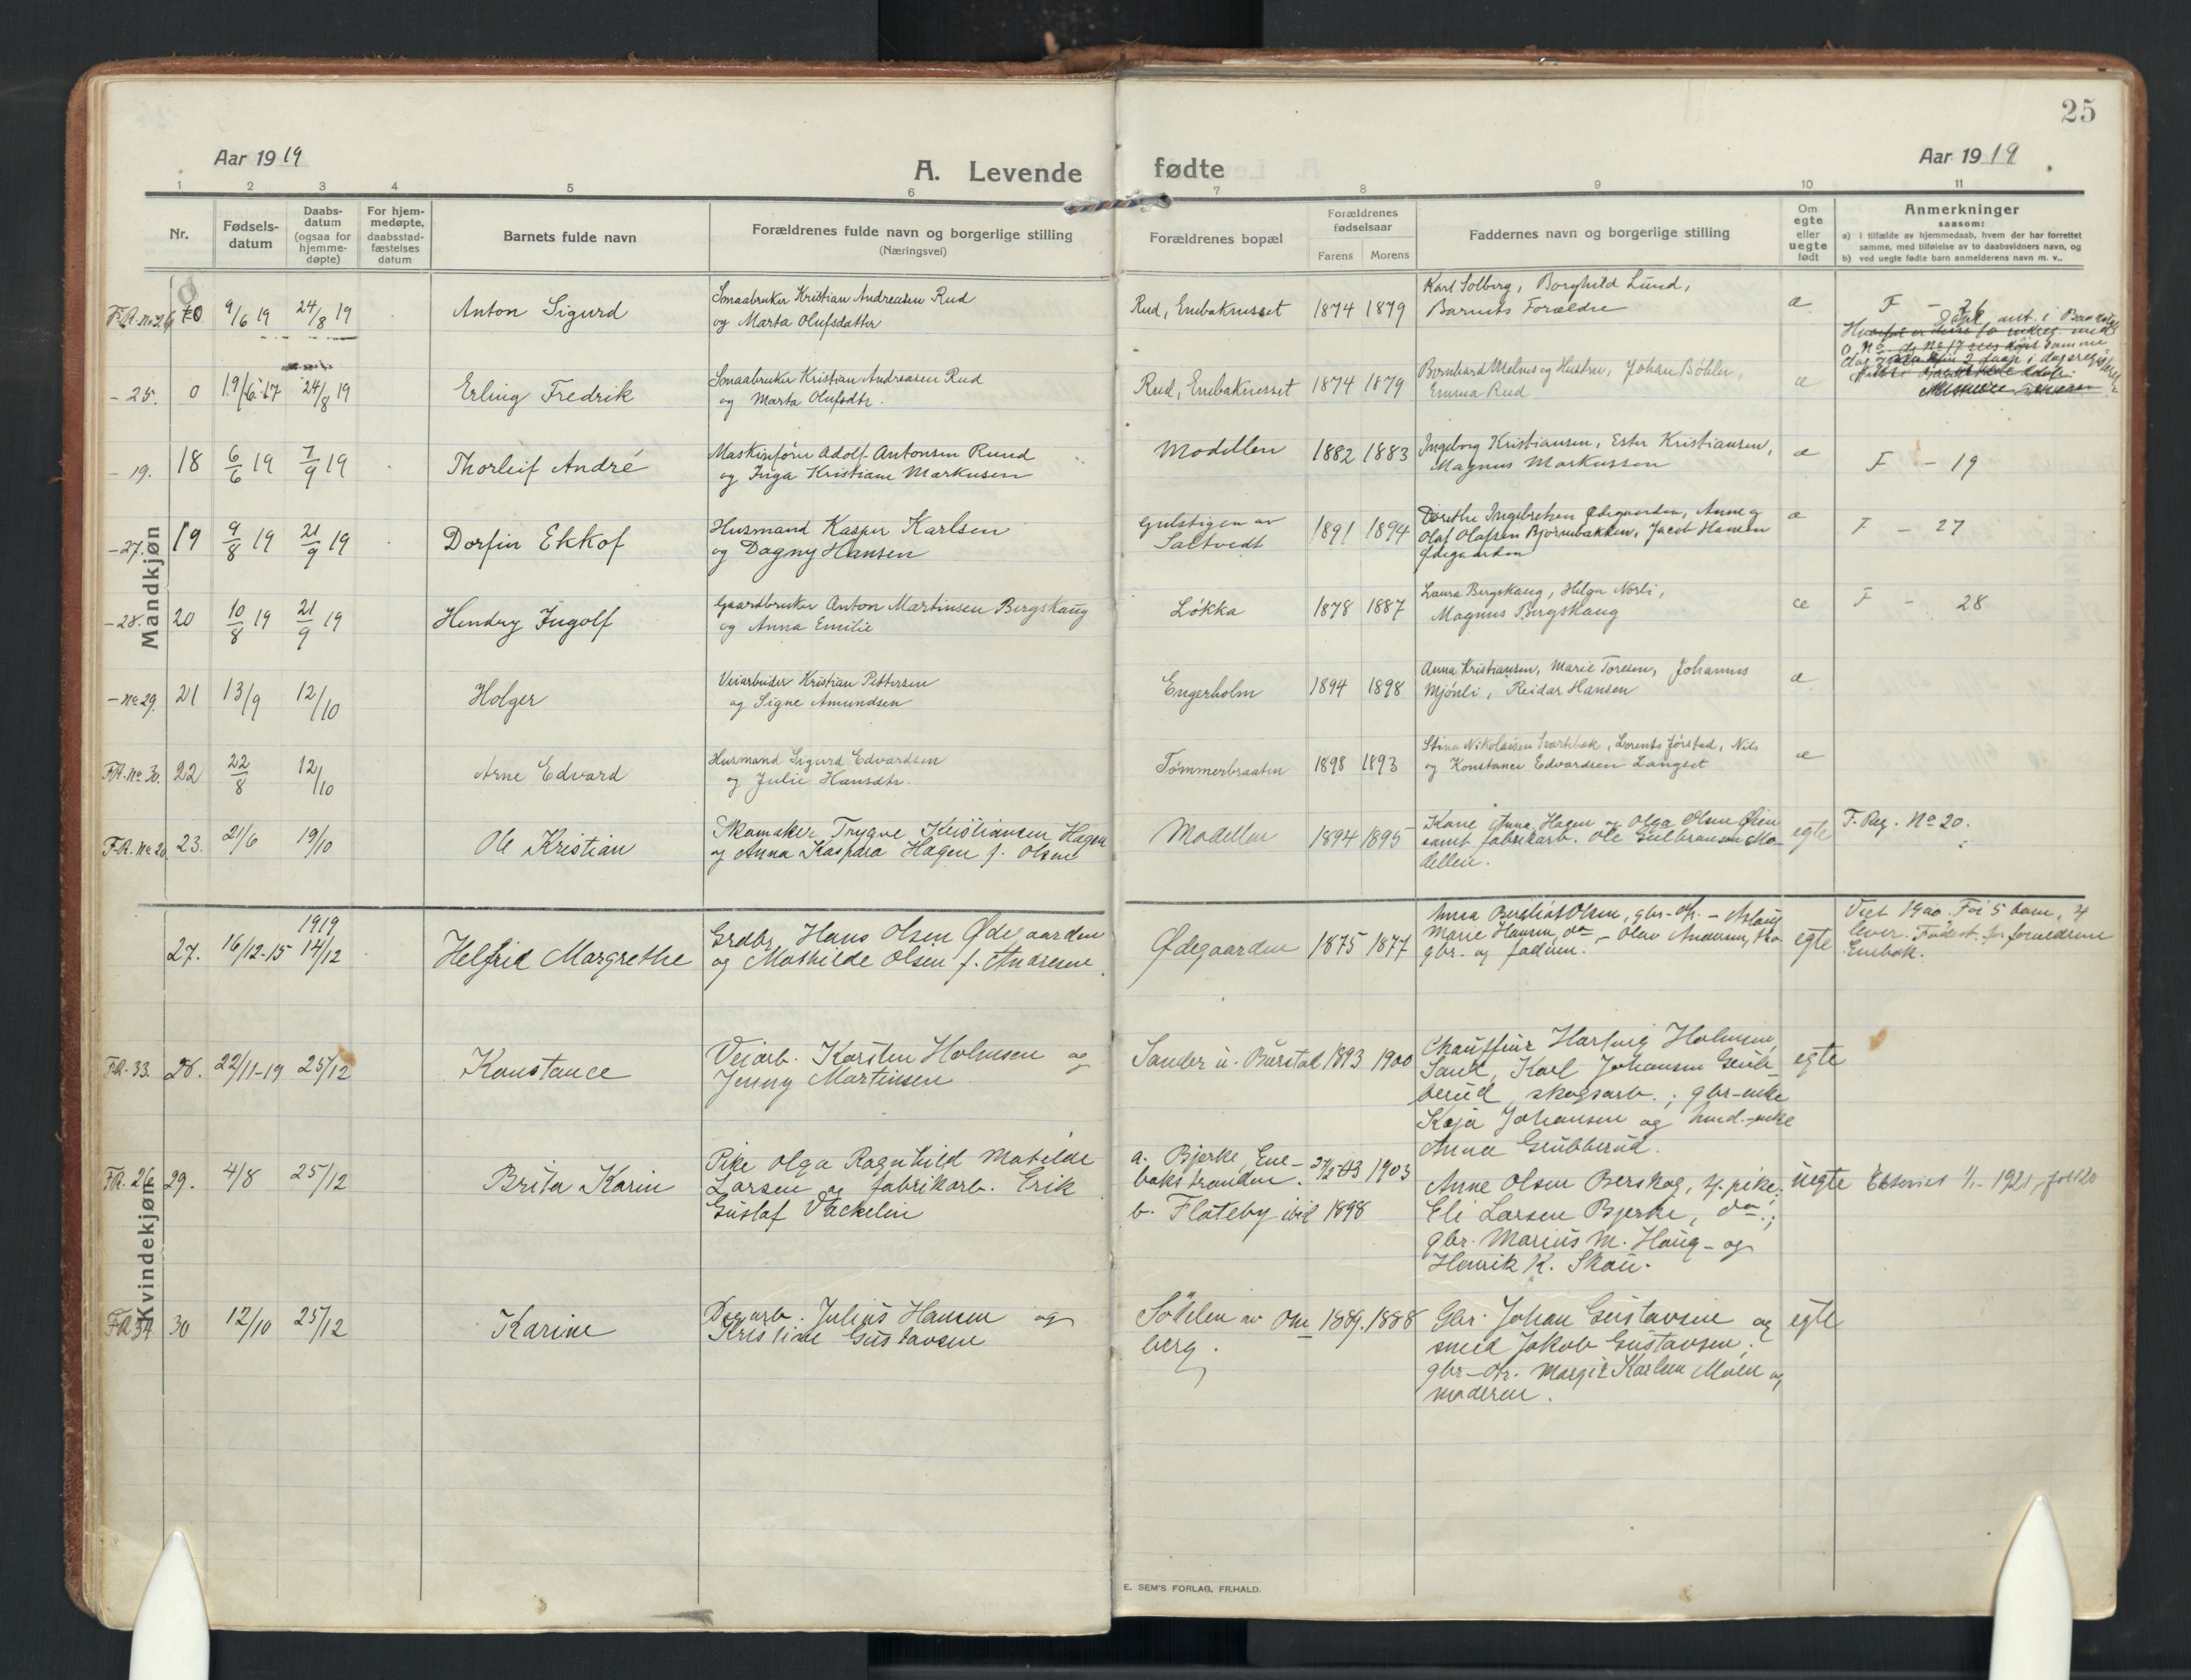 25
Aar 1919
A. Levende fødte
Aar 1919
1 2 3 4 5 6 7 8 9 10 11
Nr.
Fødsels-
datum
Daabs-
datum
(ogsaa for
hjemme-
døpte)
For hjem-
medøpte,
daabsstad-
fæstelses
datum
Barnets fulde navn
Forældrenes fulde navn og borgerlige stilling
(Næringsvei)
Forældrenes bopæl
Forældrenes
fødselsaar
Farens Morens
Faddernes navn og borgerlige stilling
Om
egte
eller
uegte
født
Anmerkninger
saasom:
a) i tilfælde av hjemmedaab, hvem der har forrettet
samme, med tilføielse av to daabsvidners navn, og
b) ved uegte fødte barn anmelderens navn m. v..
Mandkjøn
F.R. No 26 0 9/6 19 24/8 19 Anton Sigurd
Smaabruker Kristian Andreasen Rud
og Marta Olufsdatter
Rud, Enebakneset 1874 1879
Karl Solberg, Borghild Lund,
Barnets Forældre
æ F - 26
- 25. 0 19/6-17 24/8 19 Erling Fredrik
Smaabruker Kristian Andreasen Rud
og Marta Olufsdtr.
Rud, Enebakneset 1874 1879
Bernhard Melnes og Hustru, Johan Bøhler,
Emma Rud
æ
- 19. 18 6/6 19 7/9 19 Thorleif André
Maskinfører Adolf Antonsen Rund
og Inga Kristiane Markusen
Modellen 1882 1883
Ingeborg Kristiansen, Ester Kristiansen,
Magnus Markussen
æ F - 19
- 27. 19 9/8 19 21/9 19 Dorfin Ekkof
Husmand Kasper Karlsen
og Dagny Hansen
Gulstigen av
Saltvedt
1891 1894
Dorethe Ingebretsen Ødegaarden, Anne og
Olaf Olafsen Bjørnebakken, Jacob Hansen
Ødegaarden
æ F - 27
- 28. 20 10/8 19 21/9 19 Hendry Ingolf
Gaardbruker Anton Martinsen Bergskaug
og Anna Emilie
Løkka 1878 1887
Laura Bergskaug, Helga Norli,
Magnus Bergskaug
æ F - 28
- No 29. 21 13/9 12/10 Holger
Veiarbeider Kristian Pettersen
og Signe Amundsen
Engerholm 1894 1898
Anna Kristiansen, Marie Toresen, Johannes
Mjønli, Reidar Hansen
æ
F.R. No 30. 22 22/8 12/10 Arne Edvard
Husmand Sigurd Edvardsen
og Julie Hansdtr.
Tømmerbraaten 1898 1893
Stina Nikolaisen Svartebæk, Lorents Jørstad, Nils
og Konstance Edvardsen Langset
æ
F.R. No 20. 23. 21/6 19/10 Ole Kristian
Skomaker Trygve Kristiansen Hagen
og Anna Kaspara Hagen f. Olsen
Modellen 1894 1895
Kone Anna Hagen og Olga Olsen Øien
samt fabrikarb. Ole Gulbransen Mo-
dellen.
egte F. Reg. No 20.
Kvindekjøn
1919
27. 16/12-15 14/12 Helfrid Margrethe
Grdbr. Hans Olsen Ødegaarden
og Mathilde Olsen f. Andresen.
Ødegaarden 1875 1877
Anna Bergliot Olsen, gbr-dtr. - Aslaug
Marie Hansen, do - Olav Andersen,
gbr. og faderen.
egte
Viet 1900. Før 5 barn, 4
lever. Fødest. for forældrene
Enebak.
F.R. 33. 28. 22/11-19 25/12 Konstance
Veiarb. Karsten Holmsen og
Jenny Martinsen
Sander u. Børstad 1893 1900
Chauffør Hartvig Holmsen,
Sand, Karl Johansen Grub-
berud, skogsarb.; gbr-enke
Kaja Johansen og husm.-enke
Anna Grubberud.
egte
F.R. 26 29. 4/8 25/12 Brita Karin
Pike Olga Ragnhild Matilde
Larsen og fabrikarb. Erik
Gustaf Vackelin
a. Bjerke, Ene-
bakstranden.
b. Flateby ibid 1898
1903
Anne Olsen Berskog, tj. pike;
Eli Larsen Bjerke, do.;
gbr. Marius M. Haug - og
Henrik K. Skau.
uegte
1/1 - 1921, fol 120
F.R. 34 30 12/10 25/12 Karine
Dagarb. Julius Hansen og
Kristine Gustavsen
Sötelen av Om-
berg.
1889. 1888
Gbr. Johan Gustavsen og
smed Jakob Gustavsen;
gbr-dtr. Margit Karlsen Moen og
moderen.
egte
E. SEM'S FORLAG, FR.HALD.